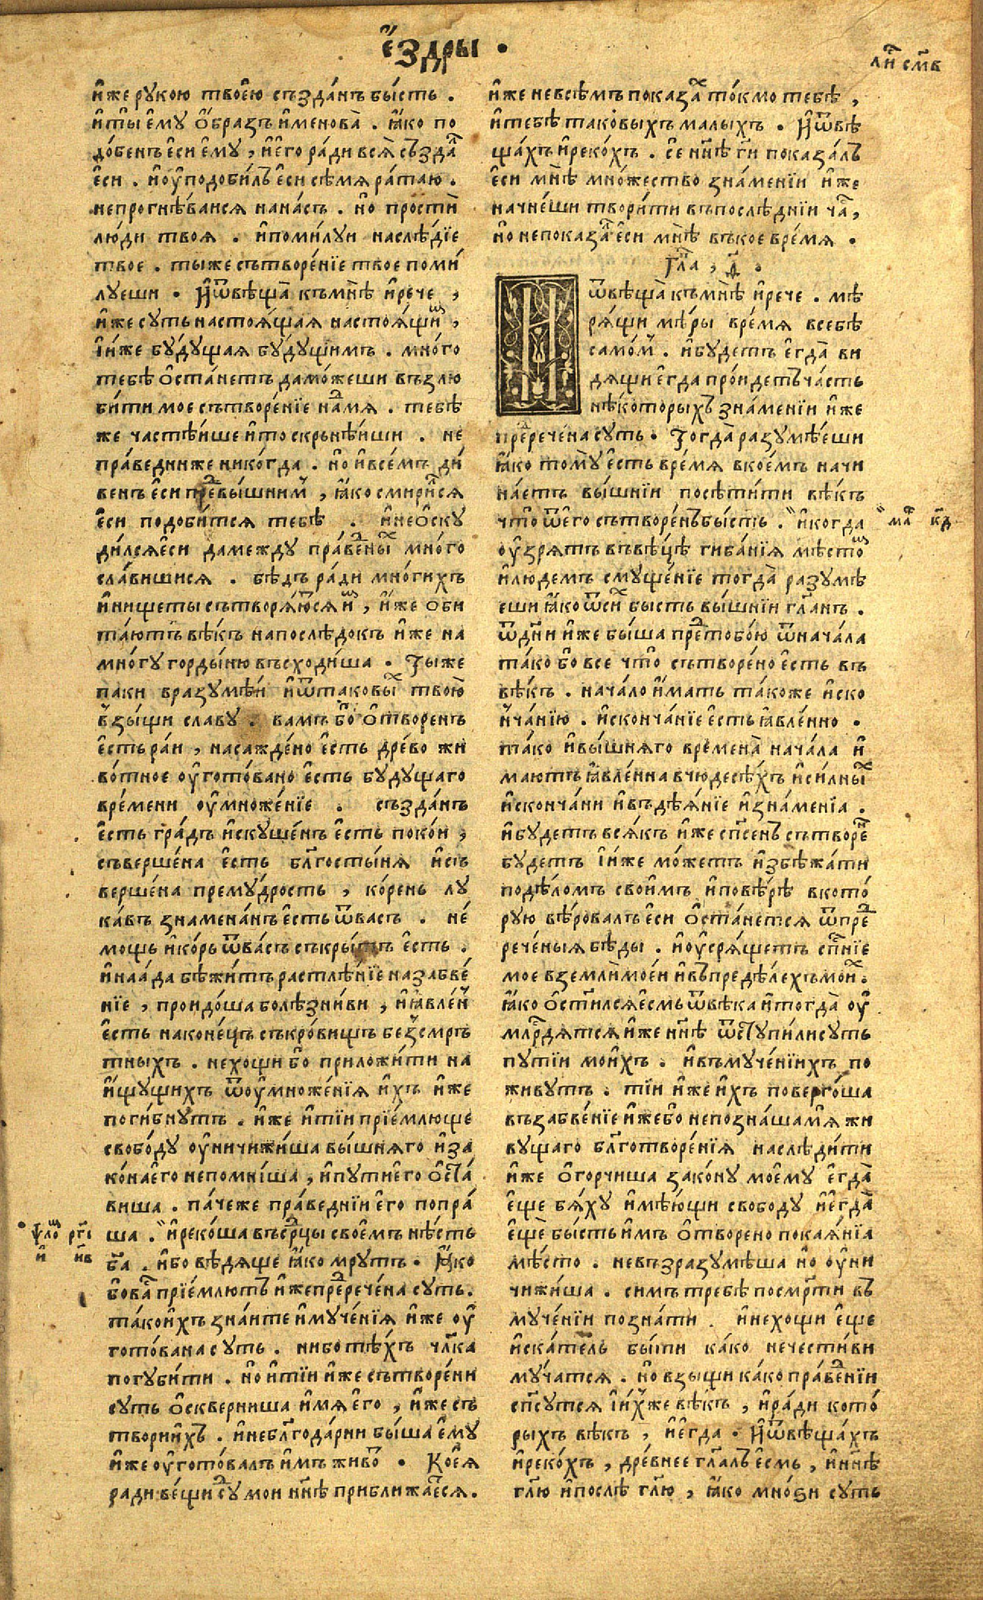 є҆́здры .
ли҇ см҃в
и҆́же рукою твое́ю създа́нъ бы́сть .
и҆ты̀ є҆му ѻ҆́бразъ и҆менова̀ . ꙗ҆́ко по
до́бенъ є҆си є҆му , и҆е҆го ра́ди всѧ̀ създа҇
є҆си . и҆оу҆подо́билъ є҆си сѣ́мѧ ра́таю .
непрогнѣ́ваисѧ нана́съ . но̀ простѝ
лю́ди твоѧ . и҆поми́луи наслѣ́дїе
твое . ты́же сътворе́нїе твое поми́
луеши . И҆ѿвѣща̀ къмнѣ̀ и҆рече ,
и҆́же суть настоѧ́щаѧ настоѧ́щи ,
і҆и҆́же бу́дущаѧ бу́дущимъ . мно́го
тебѣ̀ ѻ҆ста́нетъ дамо́жеши възлю
би́ти мое сътворе́нїе на́мѧ . тебѣ́
же ча́стѣише и҆то скрьнѣ́иши . не
пра́ведни же нико́гда . но̀ и҆всѐмъ ди́
венъ є҆си превы́шним , ꙗ҆́ко смири́сѧ
є҆си подоби́тсѧ тебѣ̀ . и҆неѻ҆ску
ди́лсѧ є҆си да между пра́вены мно́го
сла́вишисѧ . бѣ́дъ ра́ди мно́гихъ
и҆нищеты̀ сътворѧ́юсѧ и , и҆́же ѻ҆би
та́ютъ вѣ́къ напослѣ́докъ и҆́же на
мно́гу горды́ню въсходи́ша . Ты́же
паки вразумѣ́и и҆ѿтаковы твою̀
взы́щи славу . вамъ бо̀ ѻ҆творенъ
є҆сть ра́и , насажде́но є҆сть дре́во жи
во́тное оу҆гото́вано є҆сть бу́дущаго
вре́мени оу҆множе́нїе . създа́нъ
є҆сть гра́дъ и҆скуше́нъ є҆сть поко́и ,
съверше́на є҆сть бл҃госты́нѧ и҆съ
верше́на прему́дрость , ко́рень лу
ка́въ знамена́нъ є҆сть ѿва́съ . не́
мощь и҆ко́рь ѿва́съ съкры́тъ є҆сть .
и҆наа́да бѣжи́тъ растлѣ́нїе назабве́
нїе , проидо́ша болѣзни́ви , и҆ꙗ҆вле́н
є҆сть наконе́цъ съкро́вищъ безсмръ
тныхъ . нехощи бо̀ приложи́ти на
и҆́щущихъ ѿоу҆множе́нїѧ и҆́хъ и҆́же
поги́бнутъ . и҆́же и҆тїи прїе́млюще
свобо́ду оу҆ничижи́ша вы́шнѧго и҆за
ко́на е҆го непомни́ша , и҆пути е҆го ѻ҆ста́
виша . па́чеже пра́веднїи е҆го попра́
ша . и҆реко́ша въср҃цы своѐмъ нѣ́сть
бг҃а . и҆бо вѣ́дѧще ꙗ҆́ко мрутъ . Ꙗ҆́ко
бо ва҇ прїе́млютъ и҆́же преречѐна суть .
та́ко и҆́хъ зна́ите и҆муче́нїѧ и҆́же оу҆
гото́вана суть . нибо тѣ́хъ чл҃ка
погуби́ти . но̀ и҆тїи и҆́же сътворе́ни
суть ѻ҆скверни́ша и҆́мѧ е҆го , и҆́же съ
твори и҆́хъ . и҆небл҃года́рни бы́ша є҆му
и҆́же оу҆гото́валъ и҆̀мъ живо҇ . Коѐѧ
ради ве́щи су҇ мои нн҃ѣ приближа́есѧ .
ѱло҇ рг҃і
и҆ н҃в
и҆́же невсѣ̀мъ показа҇ то́кмо тебѣ̀ ,
и҆тебѣ̀ таковы́хъ ма́лыхъ . И҆ѿвѣ
ща́хъ и҆реко́хъ . се нн҃ѣ гн҃и показа́лъ
є҆си мнѣ̀ мно́жество зна́менїи и҆́же
начне́ши твори́ти въпослѣ́днїи ча҇ ,
но̀ непоказа҇ є҆си мнѣ̀ въкое вре́мѧ .
Гла҇ , д҃ .
И ѿвѣща̀ къмнѣ̀ и҆рече . мѣ́
рѧщи мѣ́ры вре́мѧ всебѣ̀
само́м . и҆бу́детъ є҆гда̀ ви
дѧщи є҆гда про́идетъ ча́сть
нѣ́которыхъ зна́менїи и҆́же
пререче́на суть . Тогда̀ разумѣ́еши
ꙗ҆́ко то́му є҆сть вре́мѧ вкое́мъ начи
на́етъ вы́шнїи посѣти́ти вѣ́къ
что̀ ѿне́го сътворе́нъ бы́сть . и҆когда
оу҆зрѧтъ въвѣ́цѣ ги́банїѧ мѣ́сто
и҆лю́демъ смуще́нїе тогда̀ разумѣ́
еши ꙗ҆́ко ѿси бысть вы́шнїи гл҃анъ .
ѿдн҃и и҆́же бы́ша пре҇тобо́ю ѿнача́ла
та́ко бо̀ все что̀ сътворе́но є҆сть въ
вѣ́къ . нача́ло и҆́мать та́коже и҆ско
нча́нїю . и҆сконча́нїе є҆сть ꙗ҆вле́нно .
та́ко и҆вы́шнѧго времена̀ нача́ла и҆
ма́ютъ ꙗ҆вле́нна вчюдесѣ́хъ и҆си́лны
и҆сконча́ни и҆въдѣѧ́нїе и҆зна́менїа .
и҆бу́детъ всѧ́къ и҆́же спс҃енъ сътворе҇
бу́детъ і҆и҆́же мо́жетъ и҆збѣжа́ти
подѣ́ломъ свои́мъ и҆повѣ́рѣ вкото́
рую вѣ́ровалъ є҆си ѻ҆ста́нетсѧ ѿпре҇
рече́ныѧ бѣ́ды . и҆оу҆срѧ́щетъ сп҃нїе
мое вземлѝ мое́и и҆въпредѣ́лехъ мои .
ꙗ҆́ко ѻ҆ст҃илсѧ є҆смь ѿвѣ́ка и҆тогда̀ оу҆
млр҃дѧтсѧ и҆́же нн҃ѣ ѿступи́ли суть
путїи мои́хъ . и҆въмуче́нїихъ по
живутъ . тїи и҆́же и҆́хъ поверго́ша
възабве́нїе и҆́жебо непозна́ша мѧ̀ жи
вущаго бл҃готворе́нїѧ наслѣди́ти
и҆́же ѻ҆горчи́ша зако́ну моему є҆гда̀
є҆ще бѧ́ху и҆мѣ́ющи свободу и҆е҆гда̀
є҆щѐ бы́сть и҆̀мъ ѻ҆творено покаѧ́нїа
мѣ́сто . невъзразумѣ́ша но̀ оу҆ни
чижи́ша . симъ требѣ̀ посмр҃ти въ
муче́нїи позна́ти . и҆нехощи є҆ще
и҆ска́тель быти како нечести́ви
му́чатсѧ . но̀ взыщи ка́ко пра́венїи
спс҃утсѧ і҆и҆́хже вѣ́къ , и҆ра́ди кото́
рыхъ вѣ́къ , и҆е҆гда . И҆ѿвѣща́хъ
и҆реко́хъ , дре́внее гл҃алъ є҆смь , и҆нн҃ѣ
гл҃ю и҆послѣ̀ гл҃ю , ꙗ҆́ко мно́ѕи суть
ма҇ к҃д